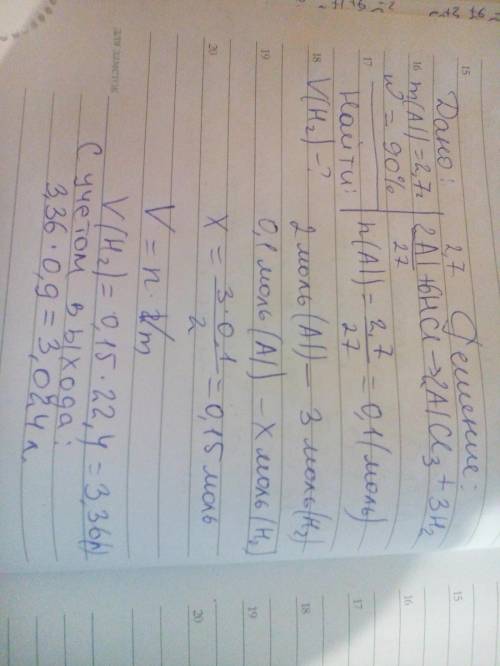 15
Дано:
2,7
Решение:
16
m(Al) = 2,7г
2Al + 6HCl → 2AlCl3 + 3H2
w = 90%
27
17
Найти:
n(Al) = 2,7/27 = 0,1 (моль)
18
V(H2) - ?
2 моль (Al) — 3 моль (H2)
19
0,1 моль (Al) — x моль (H2)
20
x = 3·0,1/2 = 0,15 моль
V = n · Vm
для заметок
V(H2) = 0,15 · 22,4 = 3,36 (л)
С учетом выхода:
3,36 · 0,9 = 3,024 л.
15
16
17
18
19
20